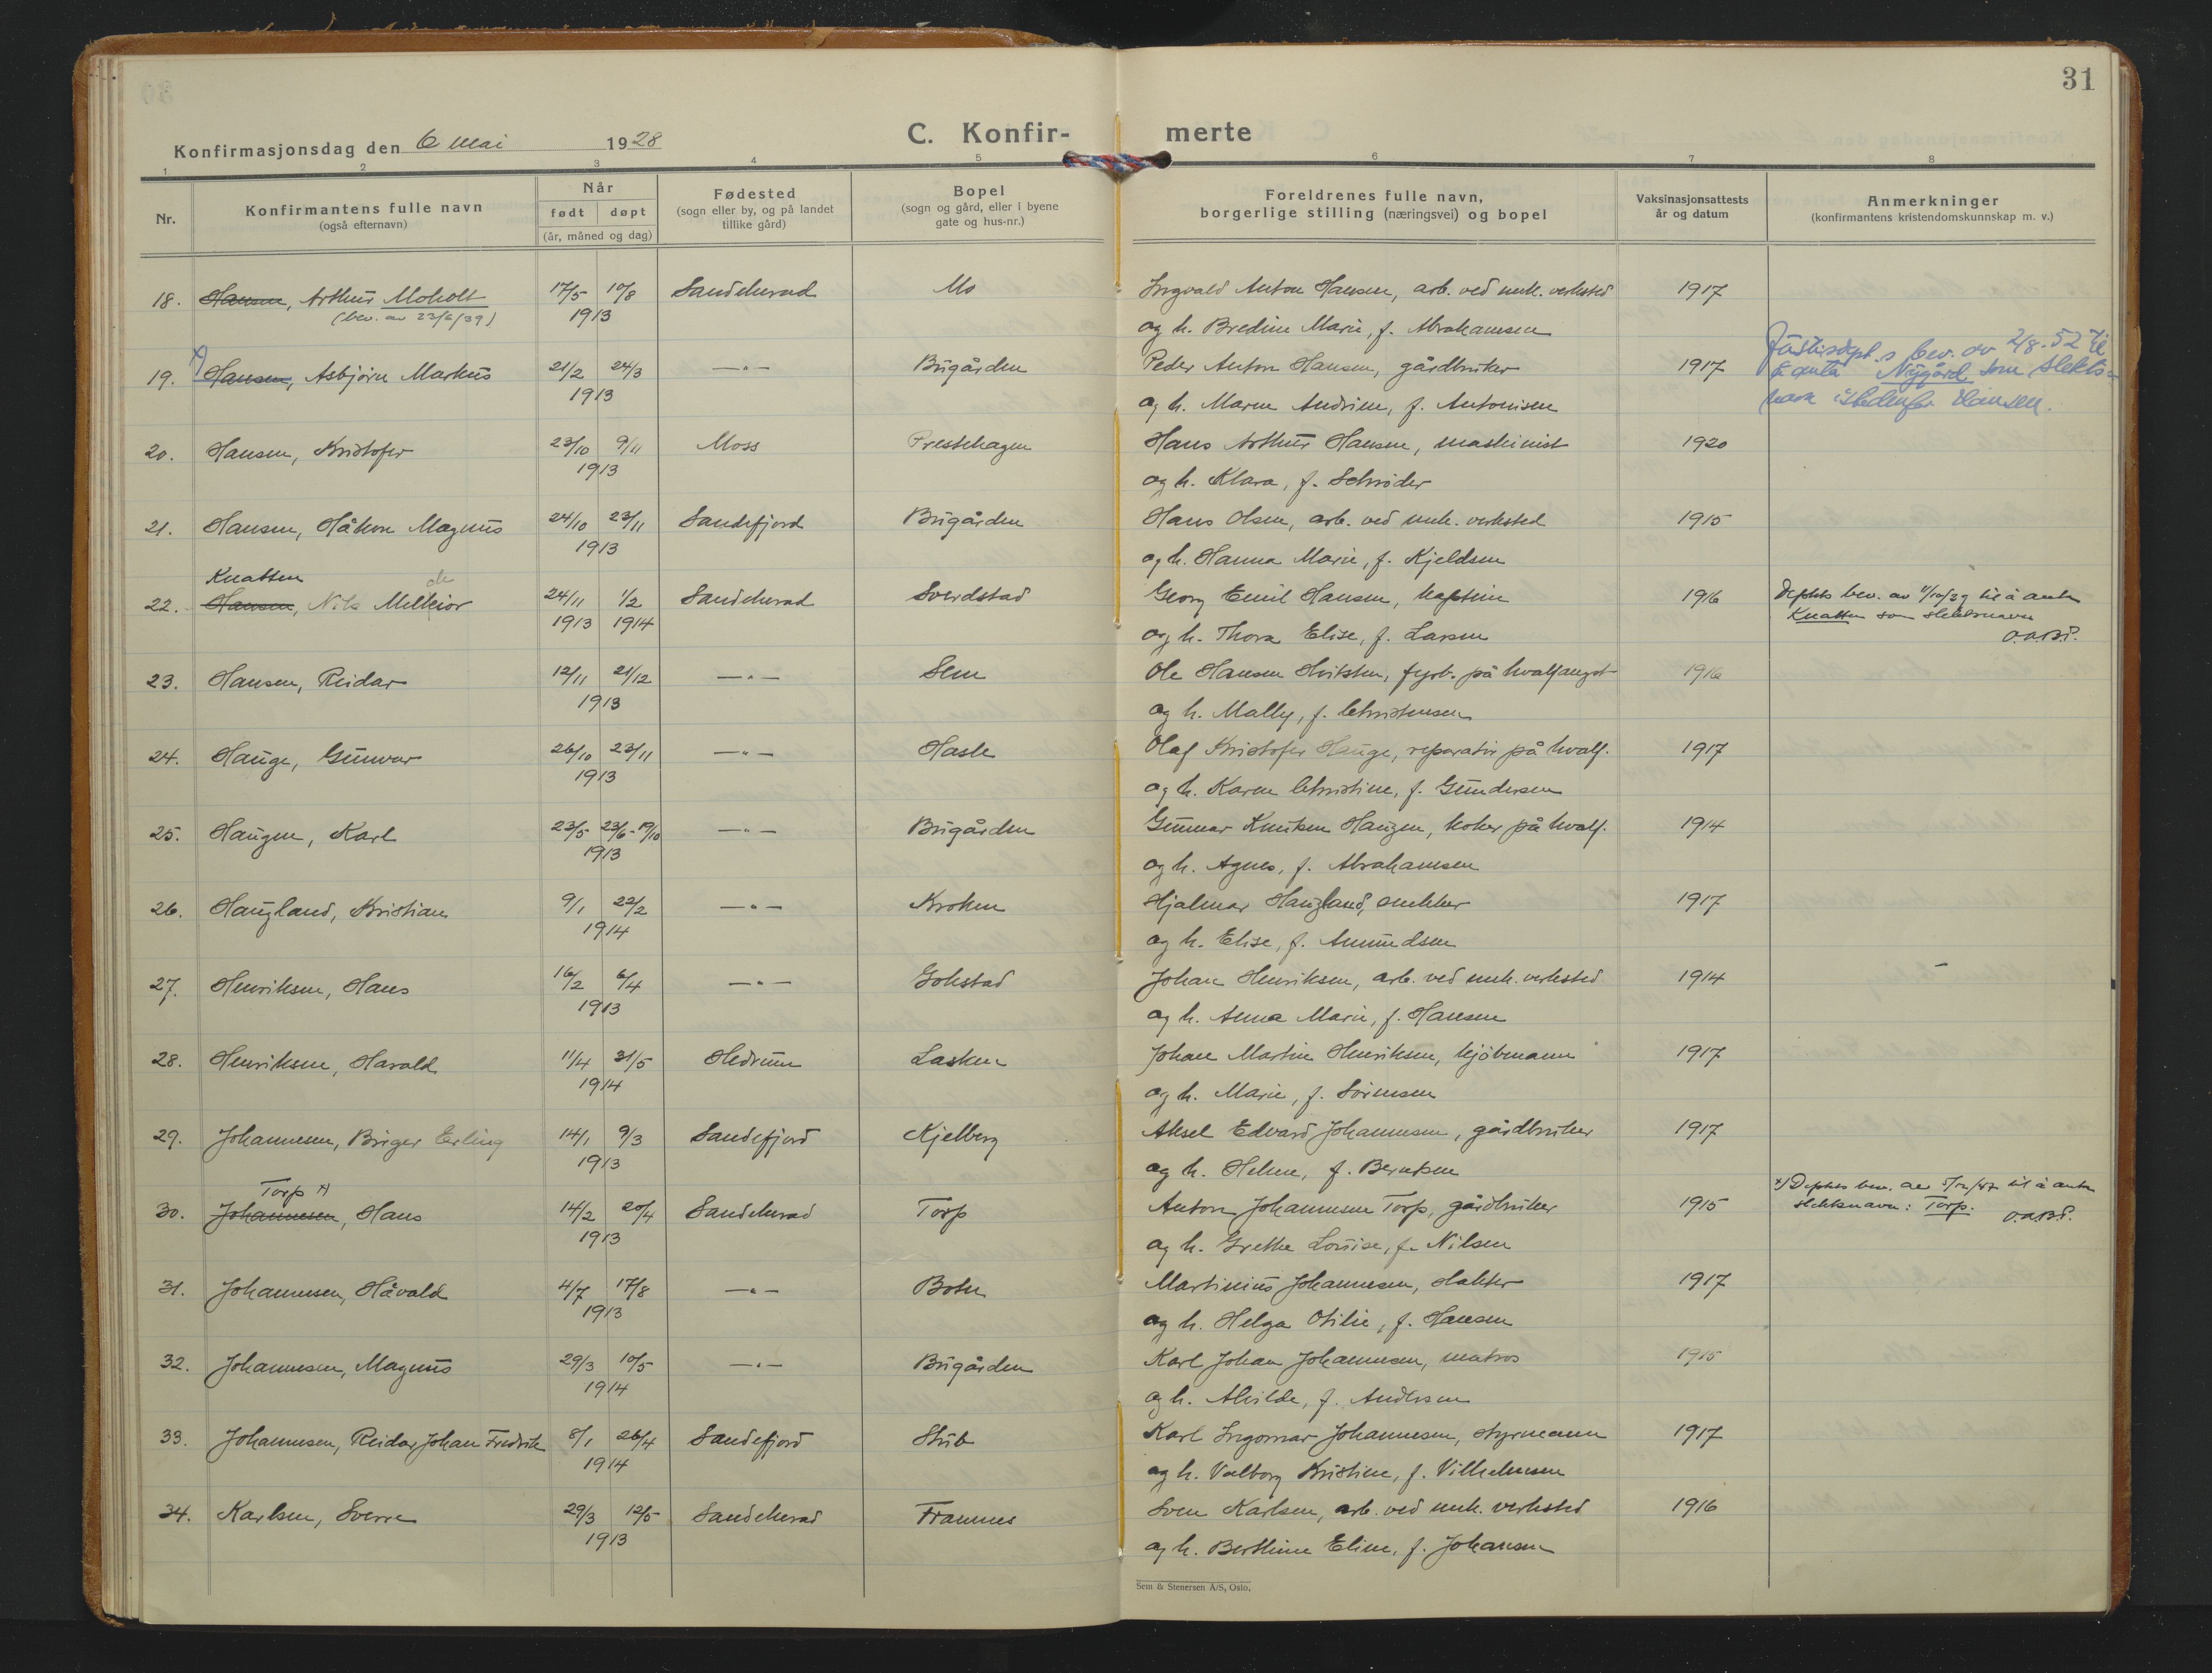 31
Konfirmasjonsdag den 6 mai 1928
C. Konfir- merte
1 2 3 4 5 6 7 8
Nr.
Konfirmantens fulle navn
(også efternavn)
Når
født døpt
(år, måned og dag)
Fødested
(sogn eller by, og på landet
tillike gård)
Bopel
(sogn og gård, eller i byene
gate og hus-nr.)
Foreldrenes fulle navn,
borgerlige stilling (næringsvei) og bopel
Vaksinasjonsattests
år og datum
Anmerkninger
(konfirmantens kristendomskunnskap m. v.)
18. Hansen, Arthur Moholt 17/5 10/8 Sandeherad Mo Ingvald Anton Hansen, arb. ved mek. verksted 1917
(bev. av 23/6/39) 1913 og h. Bredine Marie, f. Abrahamsen
19. x) Hansen, Asbjørn Markus 21/2 24/3 —"— Bugården Peder Anton Hansen, gårdbruker 1917 Justisdept.s bev. av 2/8.52 til
å anta Nygård som slekts-
navn istedenfor Hansen.
1913 og h. Maren Andrine, f. Antonisen
20. Hansen, Kristofer 23/10 9/11 Moss Prestehagen Hans Arthur Hansen, maskinist 1920
1913 og h. Klara, f. Schrøder
21. Hansen, Håkon Magnus 24/10 23/11 Sandefjord Bugården Hans Olsen, arb. ved mek. verksted 1915
1913 og h. Hanna Marie, f. Kjeldsen
Knatten ch
22. Hansen, Nils Melkior 24/11 1/2 Sandeherad Sverdstad Georg Emil Hansen, kaptein 1916 Deptets bev. av 11/10/39 til å anta
Knatten som slektsnavn
O.A.B.P.
1913 1914 og h. Thora Elise, f. Larsen
23. Hansen, Reidar 12/11 21/12 —"— Sem Ole Hansen Hvitsten, fyrb. på hvalfangst 1916
1913 og h. Mally, f. Christensen
24. Hauge, Gunvar 26/10 23/11 —"— Hasle Olaf Kristofer Hauge, reparatør på hvalf. 1917
1913 og h. Karen Christine, f. Gundersen
25. Haugen, Karl 23/5 23/6-19/10 —"— Bugården Gunnar Knutsen Haugen, koker på hvalf. 1914
1913 og h. Agnes, f. Abrahamsen
26. Haugland, Kristian 9/1 22/2 —"— Kroken Hjalmar Haugland, snekker 1917
1914 og h. Elise, f. Amundsen
27. Henriksen, Hans 16/2 6/4 —"— Gokstad Johan Henriksen, arb. ved mek. verksted 1914 –
1913 og h. Anna Marie, f. Hansen
28. Henriksen, Harald 11/4 31/5 Hedrum Lasken Johan Martin Henriksen, kjøbmann 1917
1914 og h. Marie, f. Sørensen
29. Johannesen, Birger Erling 14/1 9/3 Sandefjord Kjelberg Aksel Edvard Johannesen, gårdbruker 1917
1913 og h. Helene, f. Berntsen
Torp x)
30. Johannesen, Hans 14/2 20/4 Sandeherad Torp Anton Johannesen Torp, gårdbruker 1915 x) Deptets bev. av 5/12/47 til å anta
slektsnavn: Torp. O.A.B.P.
1913 og h. Grethe Lovise, f. Nilsen
31. Johannesen, Håvald 4/7 17/8 —"— Boten Martinius Johannesen, slakter 1917
1913 og h. Helga Otilie, f. Hansen
32. Johannesen, Magnus 29/3 10/5 —"— Bugården Karl Johan Johannesen, matros 1915
1914 og h. Alvilde, f. Andersen
33. Johannesen, Reidar Johan Fredrik 8/1 26/4 Sandefjord Stub Karl Ingomar Johannesen, styrmann 1917
1914 og h. Valborg Kristine, f. Vilhelmsen
34. Karlsen, Sverre 29/3 12/5 Sandeherad Framnes Sven Karlsen, arb. ved mek. verksted 1916
1913 og h. Berthine Eline, f. Johansen
Sem & Stenersen A/S, Oslo.